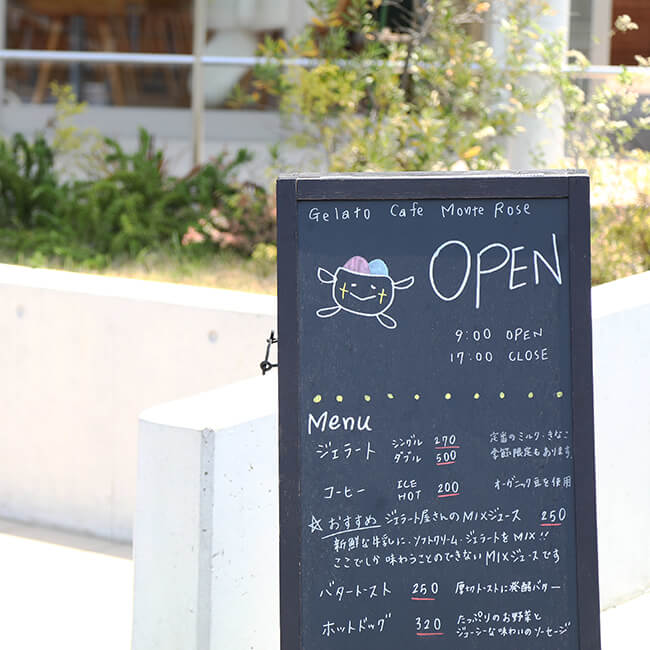 Gelato Cafe Monte Rose
OPEN
9:00 OPEN
17:00 CLOSE
Menu
ジェラート シングル 270 定番のミルク・きなこ
ダブル 500 季節限定もあります
コーヒー ICE HOT 200 オーガニック豆を使用
☆おすすめ ジェラート屋さんのMIXジュース 250
新鮮な牛乳に、ソフトクリーム・ジェラートをMIX!!
ここでしか味わうことのできないMIXジュースです
バタートースト 250 厚切トーストに発酵バター
ホットドッグ 320 たっぷりのお野菜と
ジューシーな味わいのソーセージ